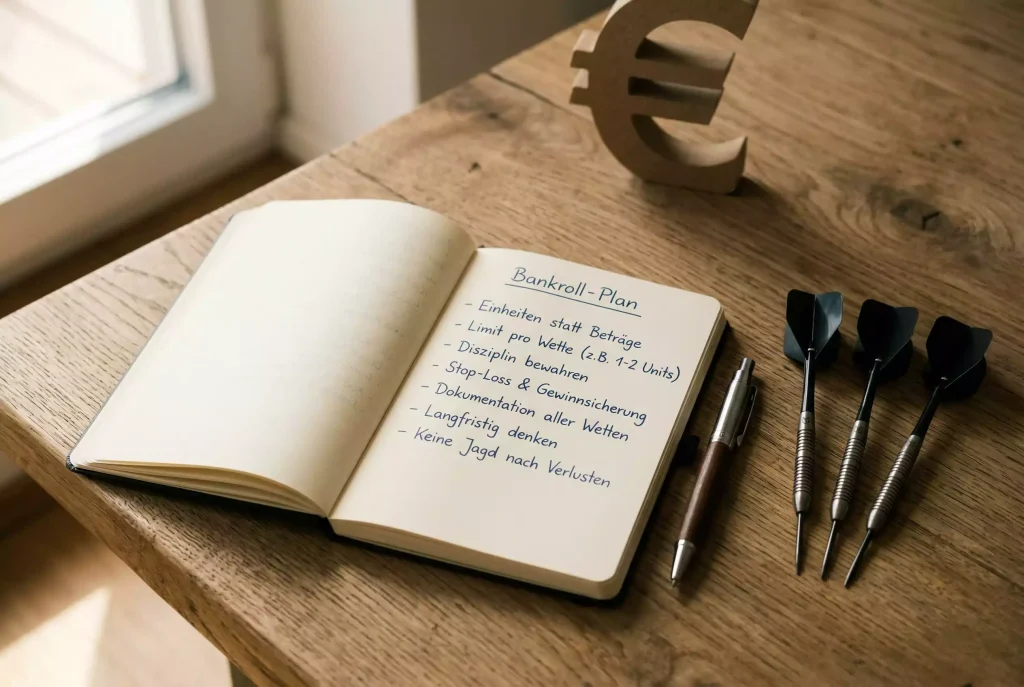 Bankroll-Plan
- Einheiten statt Beträge
- Limit pro Wette (z.B. 1-2 Units)
- Disziplin bewahren
- Stop-Loss & Gewinnsicherung
- Dokumentation aller Wetten
- Langfristig denken
- Keine Jagd nach Verlusten